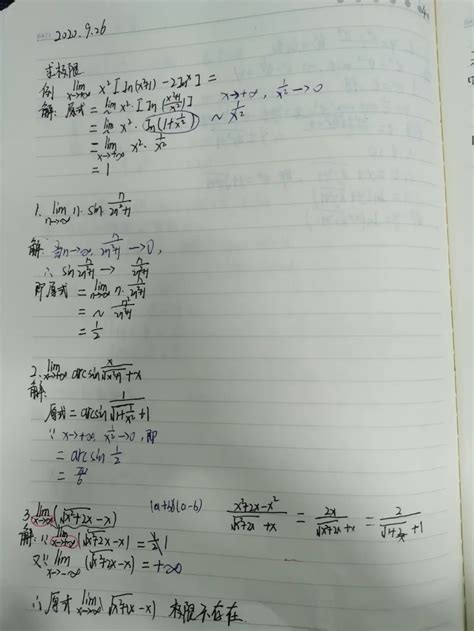 2020.9.26
求极限
例 lim x→+∞ x²[ln(x²+1)-2lnx] =
解: 原式 = lim x²·[ln(x²+1/x²)]
x→+∞, 1/x²→0
= lim x²·ln(1+1/x²) ~ 1/x²
= lim x→+∞ x²·1/x²
= 1
1. lim n→∞ n·sin n/2n²+1
解: 当n→∞, n/2n²+1 →0,
∴ sin n/2n²+1 → n/2n²+1
即原式 = lim n→∞ n·n/2n²+1
= ~ n²/2n²+1
= 1/2
2. lim x→+∞ arcsin x/√x²+1+x
解:
原式 = arcsin 1/√1+1/x²+1
∵ x→+∞, 1/x²→0, 即
= arcsin 1/2
= π/6
(a+b)(a-b)
x²+2x-x²/√x²+2x+x = 2x/√x²+2x+x = 2/√1+2/x+1
3. lim x→∞ (√x²+2x-x)
解: ∵ lim x→+∞ (√x²+2x-x) = 1
又∵ lim x→-∞ (√x²+2x-x) = +∞
∴ 原式 lim x→∞ √x²+2x-x) 极限不存在.